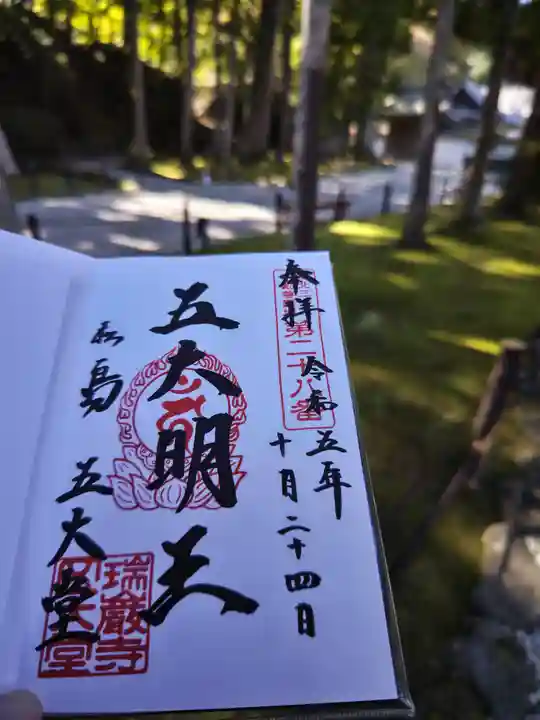 奉拝
第二十八番
令和五年
十月二十四日
五大明王
松島
五大堂
瑞巌寺
五大堂